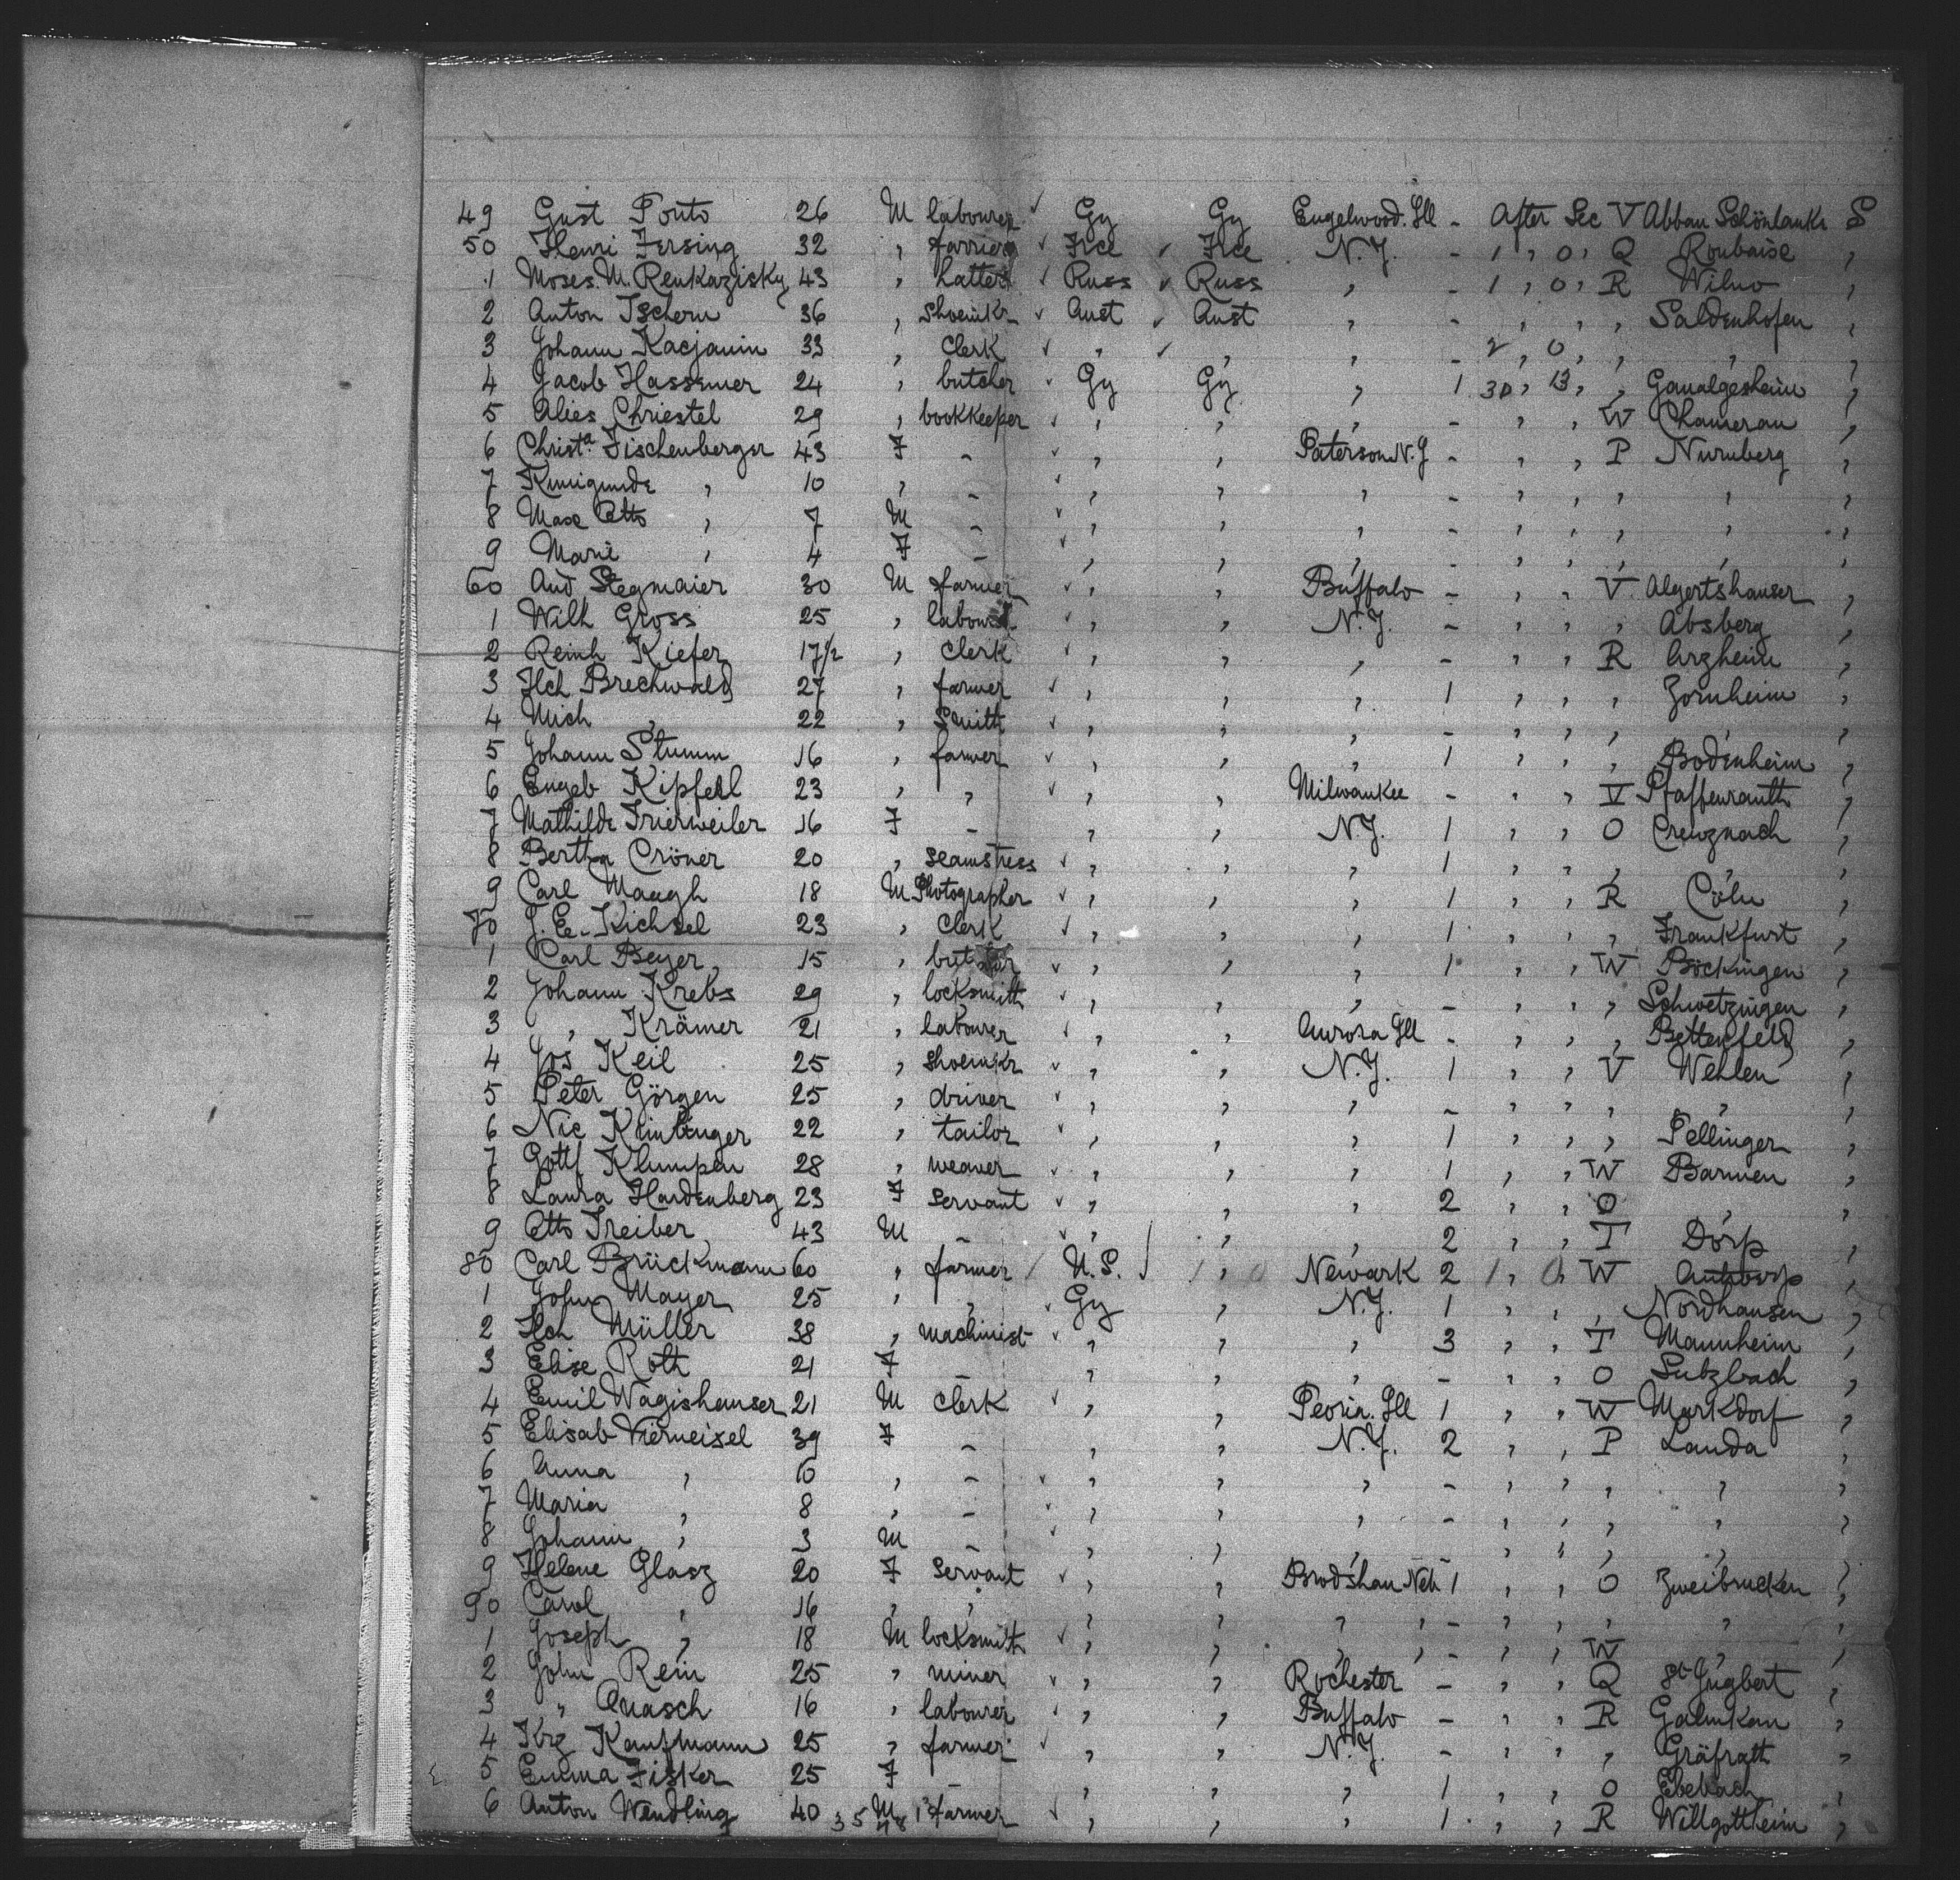 49 Gust Ponto 26 M labourer Gy Gy Engelwood. Ill - After Sec V Abbau Schönlanke S
50 Henri Fersing 32 " farrier Fce Fce N.Y. - 1 " 0 " Q Roubaise "
1 Moses. M. Renkazisky 43 " hatter Russ Russ " - 1 " 0 " R Wilno "
2 Anton Tschern 36 " Shoemkr Aust Aust " - " " " Saldenhofen "
3 Johann Kacjanin 33 " Clerk " " " - 2 " 0 " " " "
4 Jacob Hassemer 24 " butcher Gy Gy " 1 30 " 13 " " Gaualgesheim "
5 Alies Chriestel 29 " bookkeeper " " " - " " W Chamerau "
6 Christa. Fischenberger 43 F - " " Paterson N.J - " " P Nurnberg "
7 Kunigunde " 10 " - " " " - " " " " "
8 Max Otto " 7 M - " " " - " " " " "
9 Marie " 4 F - " " " - " " " " "
60 And Stegmaier 30 M farmer " " Buffalo - " " V Algertshauser "
1 Wilh Gross 25 " labourer " " N.Y. - " " " Absberg "
2 Reinh Kiefer 17 1/2 " Clerk " " " - " " R Arzheim "
3 Hch Brechwald 27 " farmer " " " 1 " " " Zornheim "
4 Mich " 22 " Smith " " " - " " " " "
5 Johann Stumm 16 " farmer " " " 1 " " " Bodenheim "
6 Engeb Kipferl 23 " " " " Milwaukee - " " V Pfaffenrauth "
7 Mathilde Trierweiler 16 F - " " N.Y. 1 " " O Creuznach "
8 Bertha Cröner 20 " Seamstress " " " 1 " " " " "
9 Carl Maagh 18 M Photographer " " " 1 " " R Cöln "
70 J. E. Kichsel 23 " Clerk " " " 1 " " " Frankfurt "
1 Carl Beyer 15 " butcher " " " 1 " " W Böckingen "
2 Johann Krebs 29 " locksmith " " " - " " " Schwetzingen "
3 " Krämer 21 " labourer " " Aurora Ill - " " " Bettenfeld "
4 Jos Keil 25 " Shoemkr " " N.Y. 1 " " V Wehlen "
5 Peter Görgen 25 " driver " " " - " " " " "
6 Nic 22 " tailor " " " 1 " " " Pellinger "
7 Gottf Klumpen 28 " weaver " " " 1 " " W Barmen "
8 Laura Hardenberg 23 F Servant " " " 2 " " O " "
9 Otto Treiber 43 M - " " " 2 " " T Dorp "
80 Carl Brückmann 60 " farmer U.S. 1 " 0 Newark 2 1 " 0 " W "
1 John Mayer 25 " " Gy " N.Y. 1 " " " Nordhausen "
2 Hch Müller 38 " machinist " " " 3 " " T Mannheim "
3 Elise Roth 21 F - " " " - " " O Sulzbach "
4 Emil Wagishauser 21 M Clerk " " Peoria. Ill 1 " " W Markdorf "
5 Elisab Vierneisel 39 F - " " N.Y. 2 " " P Lauda "
6 Anna " 10 " - " " " - " " " " "
7 Maria " 8 " - " " " - " " " " "
8 Johann " 3 M - " " " - " " " " "
9 Helene Glasz 20 F Servant " " Brodshau Neb 1 " " O Zweibrucken "
90 Carol " 16 " " " " " " - " " " " "
1 Joseph " 18 M locksmith " " " " - " " W " "
2 John Rein 25 " miner " " Rochester - " " Q St Ingbert "
3 " Quasch 16 " labourer " " Buffalo - " " R Galmkau "
4 Krz Kaufmann 25 " farmer " " N.Y. - " " " Gräfrath "
5 Emma Fisker 25 F - " " " 1 " " O Ebebach "
6 Anton Wendling 40 35 M 13 farmer " " " 1 " " R Willgottheim "
48